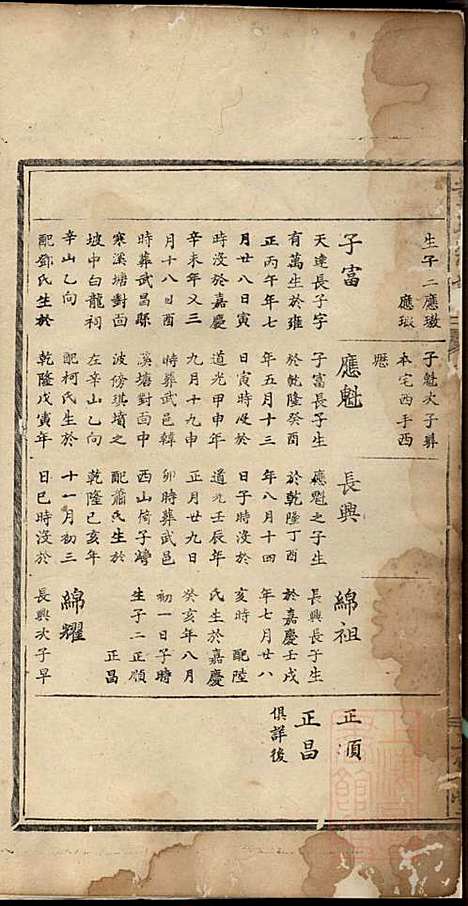 生子二應璈
應璈
子魁次子葬
本宅西手西
應
子富
天達長子字
有萬生於雍
正丙午年七
月廿八日寅
時沒於嘉慶
辛未年又三
月十八日酉
時葬武昌縣
寒溪塘對面
坡中白龍祠
辛山乙向
配鄧氏生於
應魁
子富長子生
於乾隆癸酉
年五月十三
日寅時歿於
道光甲申年
九月十九申
時葬武邑韓
溪塘對面中
波傍琪墳之
左辛山乙向
配柯氏生於
乾隆戊寅年
長興
應魁之子生
於乾隆丁酉
年八月十四
日子時沒於
道光壬辰年
正月廿九日
卯時葬武邑
西山倚子灣
配蕭氏生於
乾隆己亥年
十一月初三
日巳時沒於
綿祖
長興長子生
於嘉慶壬戌
年七月廿八
亥時 配陸
氏生於嘉慶
癸亥年八月
初一日子時
生子二正順
正昌
綿耀
長興次子早
正順
正昌
俱詳後